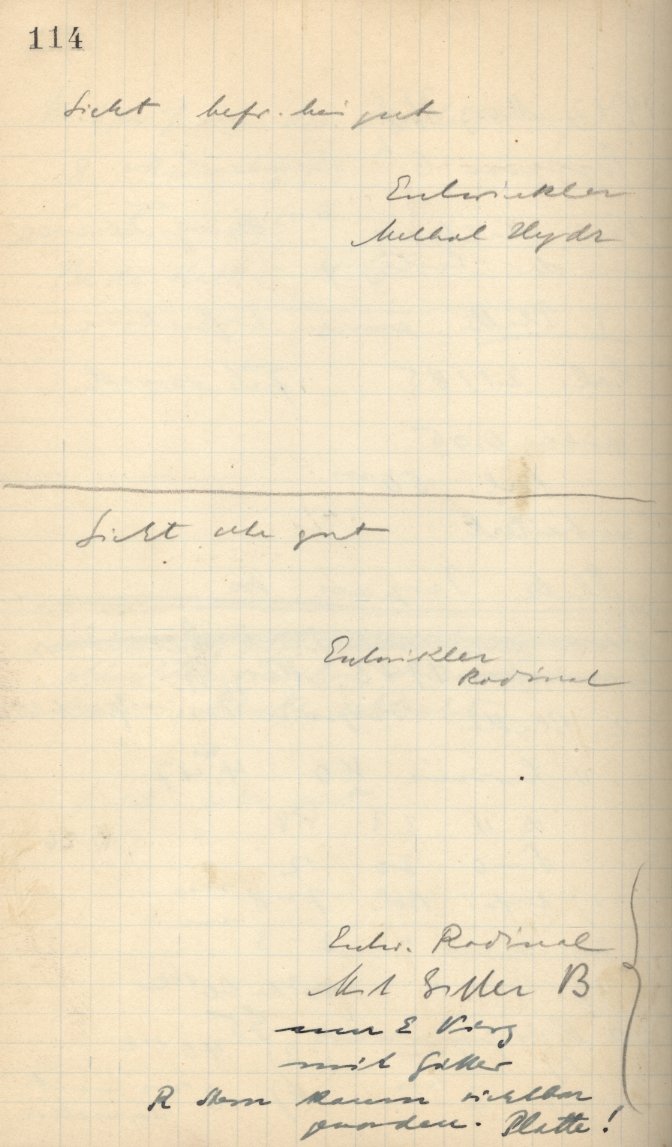 114
Sicht befr. bis gut
Entwickler
Methol Hydr
Sicht sehr gut
Entwikler
Rodinal
Entw. Rodinal
Mit Gitter B
nur E Virg
mit Gitter
R Stern kaum sichtbar
geworden. Platte!